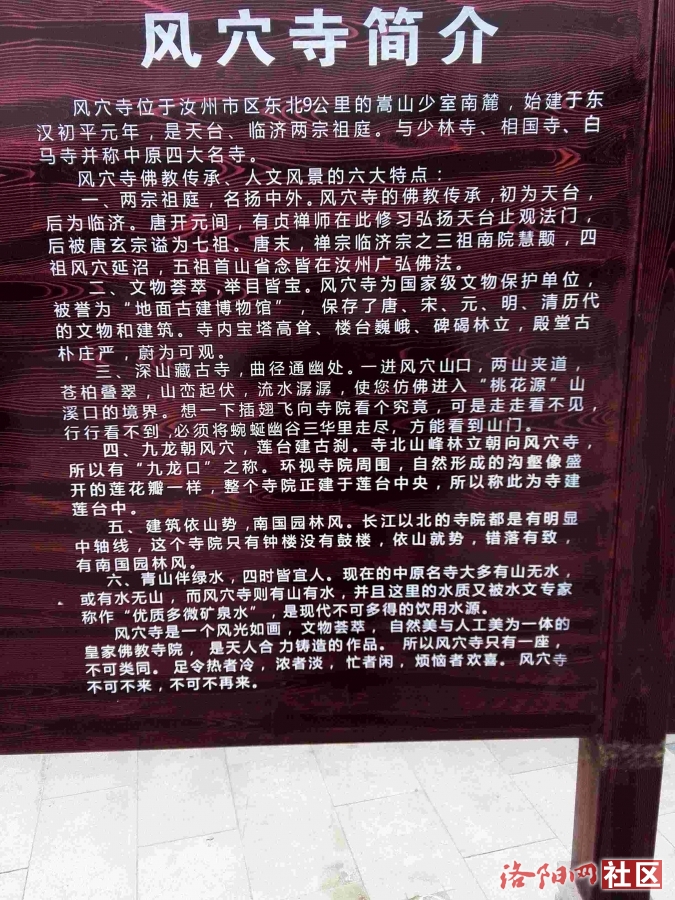 风穴寺简介
风穴寺位于汝州市区东北9公里的嵩山少室南麓，始建于东
汉初平元年，是天台、临济两宗祖庭。与少林寺、相国寺、白
马寺并称中原四大名寺。
风穴寺佛教传承、人文风景的六大特点：
一、两宗祖庭，名扬中外。风穴寺的佛教传承，初为天台，
后为临济。唐开元间，有贞禅师在此修习弘扬天台止观法门，
后被唐玄宗谥为七祖。唐末，禅宗临济宗之三祖南院慧颙，四
祖风穴延沼，五祖首山省念皆在汝州广弘佛法。
二、文物荟萃，举目皆宝。风穴寺为国家级文物保护单位，
被誉为“地面古建博物馆”，保存了唐、宋、元、明、清历代
的文物和建筑。寺内宝塔高耸、楼台巍峨、碑碣林立，殿堂古
朴庄严，蔚为可观。
三、深山藏古寺，曲径通幽处。一进风穴山口，两山夹道，
苍柏叠翠，山峦起伏，流水潺潺，使您仿佛进入“桃花源”山
溪口的境界。想一下插翅飞向寺院看个究竟，可是走走看不见，
行行看不到，必须将蜿蜒幽谷三华里走尽，方能看到山门。
四、九龙朝风穴，莲台建古刹。寺北山峰林立朝向风穴寺，
所以有“九龙口”之称。环视寺院周围，自然形成的沟壑像盛
开的莲花瓣一样，整个寺院正建于莲台中央，所以称此为寺建
莲台中。
五、建筑依山势，南国园林风。长江以北的寺院都是有明显
中轴线，这个寺院只有钟楼没有鼓楼，依山就势，错落有致，
有南国园林风。
六、青山伴绿水，四时皆宜人。现在的中原名寺大多有山无水，
或有水无山，而风穴寺则有山有水，并且这里的水质又被水文专家
称作“优质多微矿泉水”，是现代不可多得的饮用水源。
风穴寺是一个风光如画，文物荟萃，自然美与人工美为一体的
皇家佛教寺院，是天人合力铸造的作品。所以风穴寺只有一座，
不可类同。足令热者冷，浓者淡，忙者闲，烦恼者欢喜。风穴寺
不可不来，不可不再来。
洛阳网社区